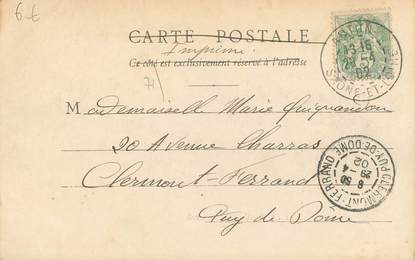 6-€
CARTE POSTALE
Imprimé
Ce côté est exclusivement réservé à l'adresse
71
Mademoiselle Marie Quignandon
20 Avenue Charras
Clermont-Ferrand
Puy de Dome
SAONE-ET-
CLERMONT-FERRAND PUY-DE-DOME
6 50
29-4
02